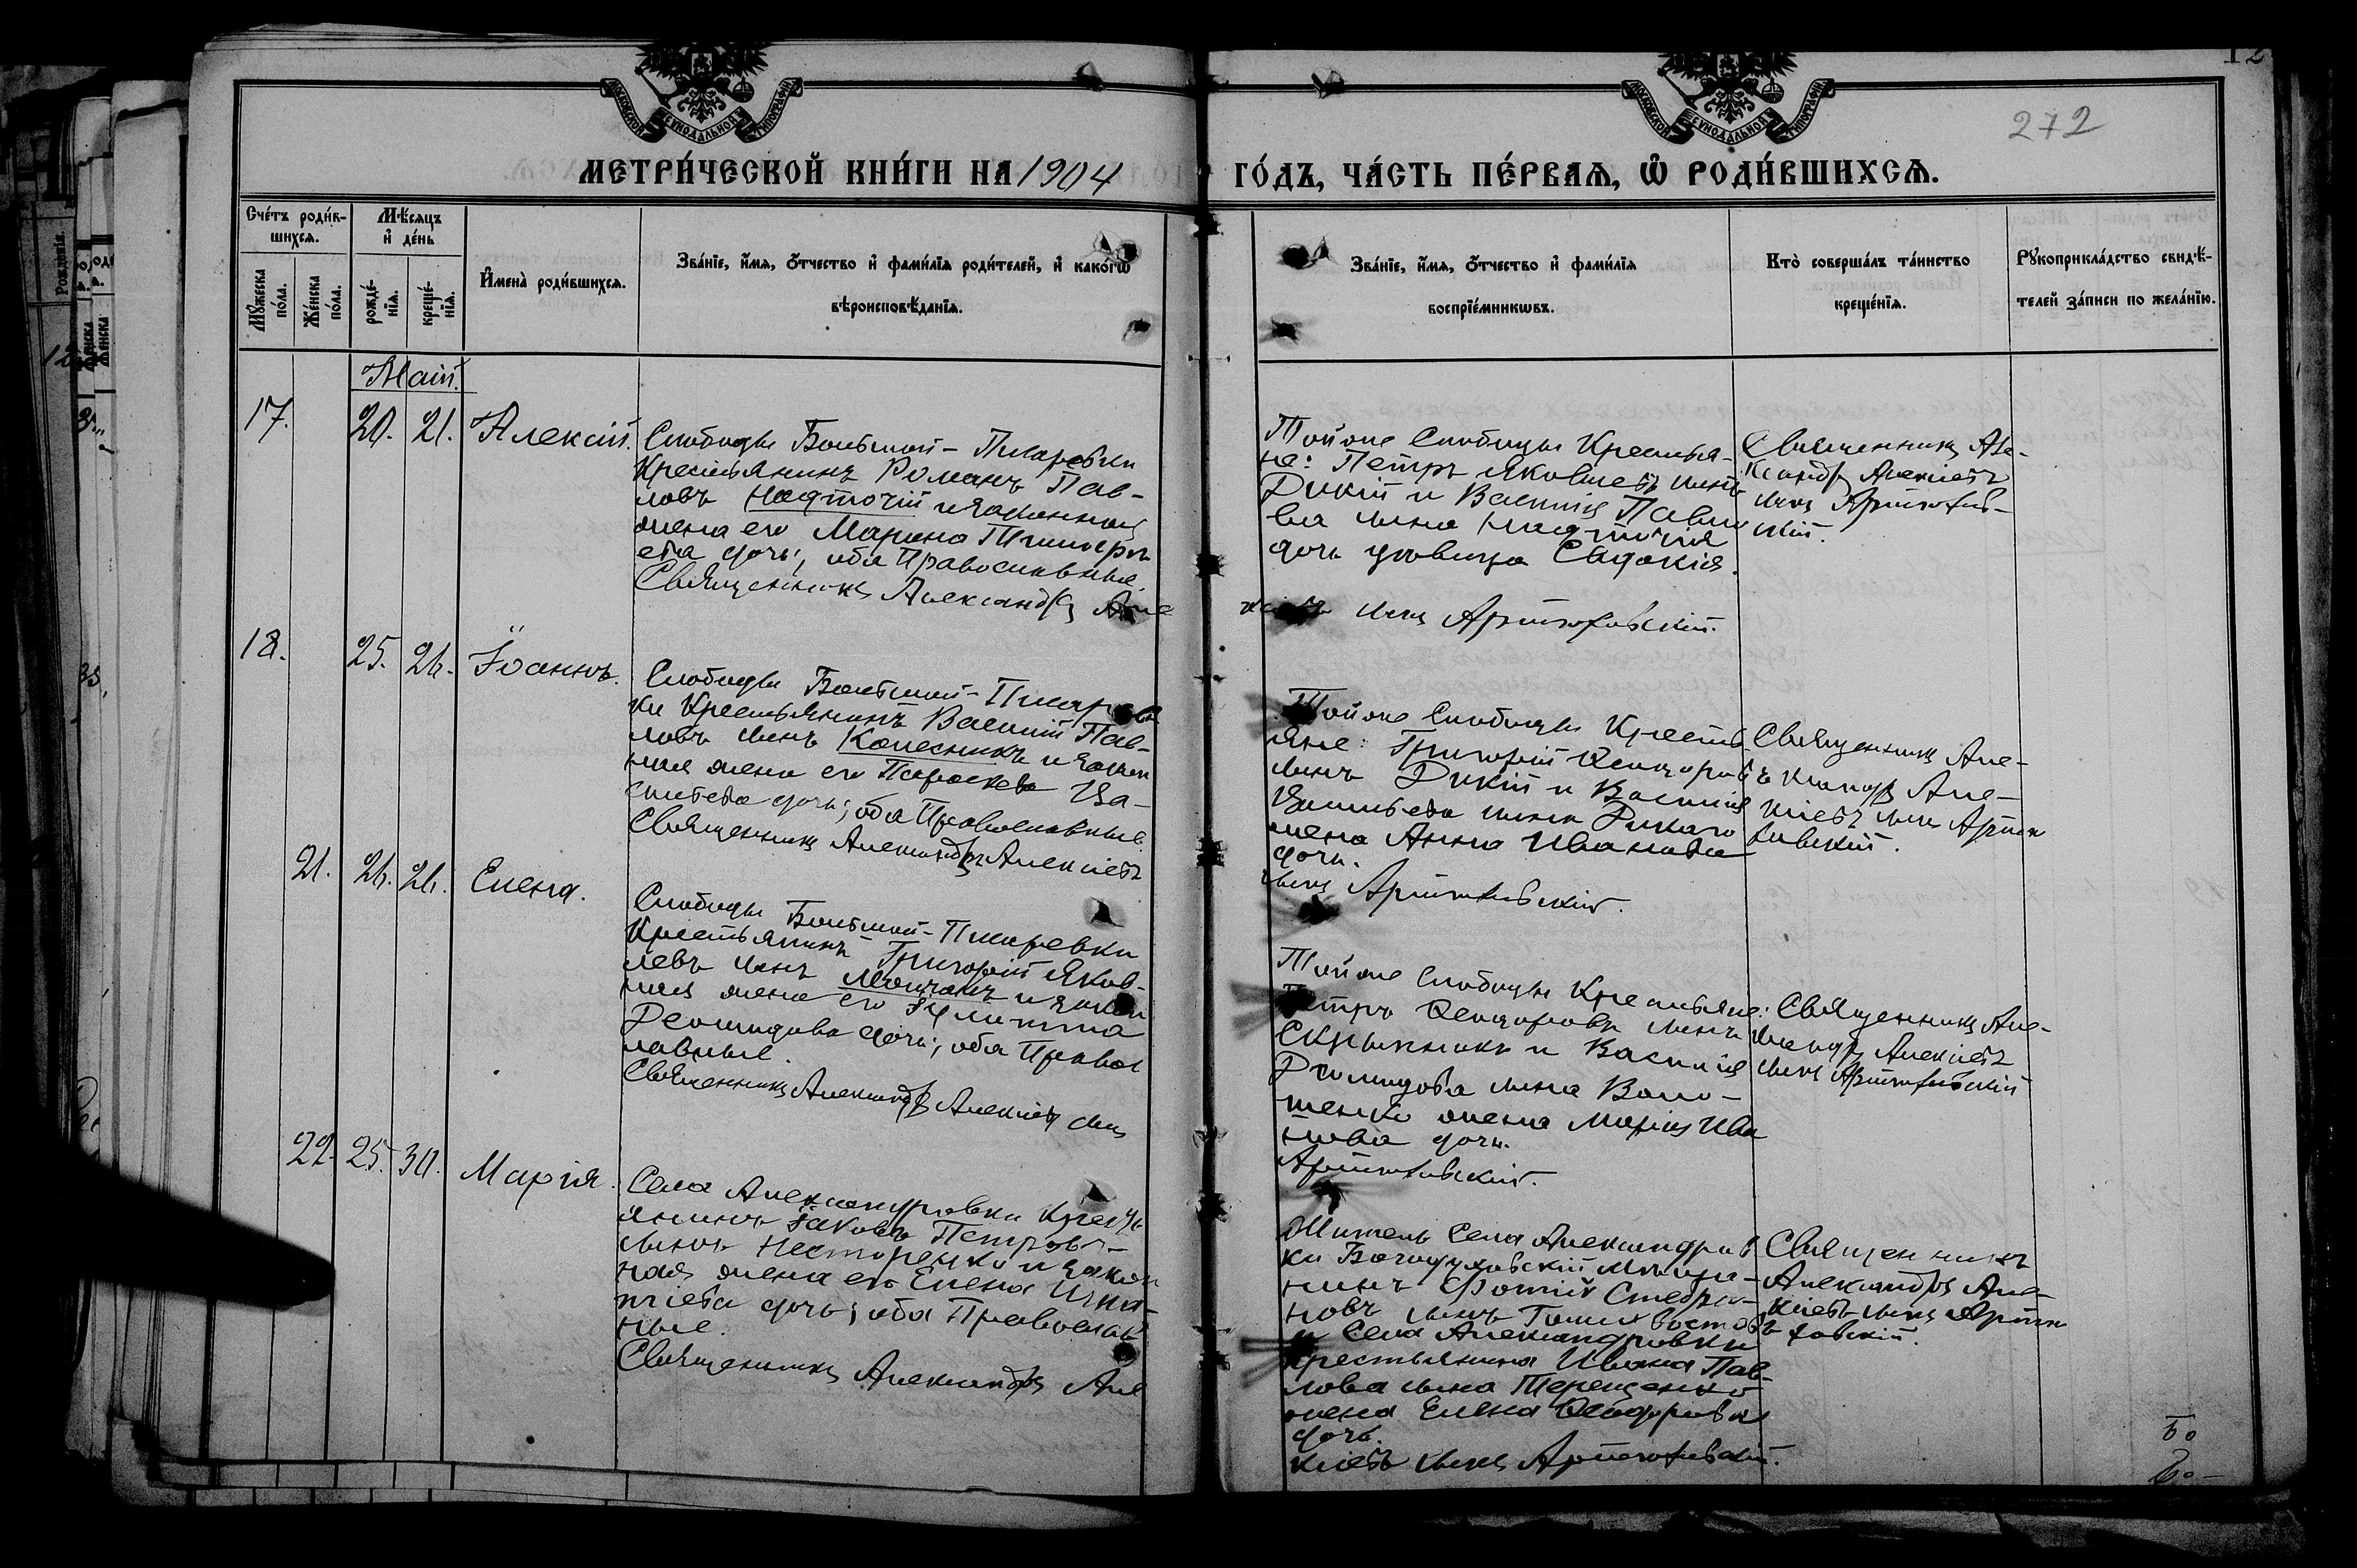 12
272
МОСКОВСКОЙ СУНОДАЛЬНОЙ ТИПОГРАФІИ
МОСКОВСКОЙ СУНОДАЛЬНОЙ ТИПОГРАФІИ
МЕТРИ́ЧЕСКОЙ КНИ́ГИ НА 1904 ГО́ДЪ, ЧА́СТЬ ПЕ́РВАѦ, Ѽ РОДИ́ВШИХСѦ.
Сче́тъ роди́в-
шихсѧ.
Мꙋ́жеска по́ла.
Же́нска по́ла.
Мѣ́сѧцъ
и҆ де́нь
рожде́-
нїѧ.
креще́-
нїѧ.
И҆мена̀ роди́вшихсѧ.
Зва́нїе, и҆́мѧ, ѻ҆́тчество и҆ фами́лїѧ роди́телей, и҆ како́гѡ
вѣроисповѣ́данїѧ.
Зва́нїе, и҆́мѧ, ѻ҆́тчество и҆ фами́лїѧ
воспрїе́мникѡвъ.
Кто̀ соверша́лъ та́инство
креще́нїѧ.
Рꙋкоприкла́дство свидѣ́-
телей за́писи по жела́нїю.
Маій.
17. 20. 21. Алексій.
Слободы Большой-Писаревки
Крестьянинъ Романъ Пав-
ловъ Надточій и законная
жена его Марина Тимофе
ева дочь; оба Православные
Священникъ Александръ Але
Тойже Слободы Крестья-
не: Петръ Яковлевъ сынъ
Дикій и Василія Павло
ва сына Надточія
дочь девица Евдокія.
сынъ Артюховскій.
Священникъ Але-
ксандръ Алексіевъ
сынъ Артюхов-
скій.
18. 25. 26. Іоаннъ.
Слободы Большой-Писарев
ки Крестьянинъ Василій Пав-
ловъ сынъ Колесникъ и закон
ная жена его Параскева Ва-
сильева дочь; оба Православные.
Священникъ Александръ Алексіевъ
Тойже Слободы Кресть
яне: Григорій Ѳеодоровъ
сынъ Дикій и Василія
Васильева сына Дикаго
жена Анна Иванова
дочь.
сынъ Артюховскій.
Священникъ Але-
ксандръ Але-
ксіевъ сынъ Артю
ховскій.
21. 26. 26. Елена.
Слободы Большой-Писаревки
Крестьянинъ Григорій Яков-
левъ сынъ Мощанъ и закон
ная жена его Іулитта
Деомидова дочь; оба Правос
лавные.
Священникъ Александръ Алексіевъ сынъ
Тойже Слободы Крестьяне:
Петръ Ѳеодоровъ сынъ
Скрынникъ и Василія
Діомидова сына Воло-
шенко жена Марія Ива
нова дочь.
Артюховскій.
Священникъ Але-
ксандръ Алексіевъ
сынъ Артюховскій
22. 25. 30. Марія.
Села Александровки Кресть
янинъ Іаковъ Петровъ
сынъ Несторенко и закон
ная жена его Елена Игна-
тіева дочь; оба Православ
ные.
Священникъ Александръ Але
Житель Села Александров
ки Богодуховскій мѣща-
нинъ Фотій Стефа-
новъ сынъ
и Села Александровки
Крестьянина Ивана Пав-
лова сына Терещенко
жена Елена Ѳеодорова
дочь.
ксіевъ сынъ Артюховскій.
Священникъ
Александръ Але-
ксіевъ сынъ Артю
ховскій.